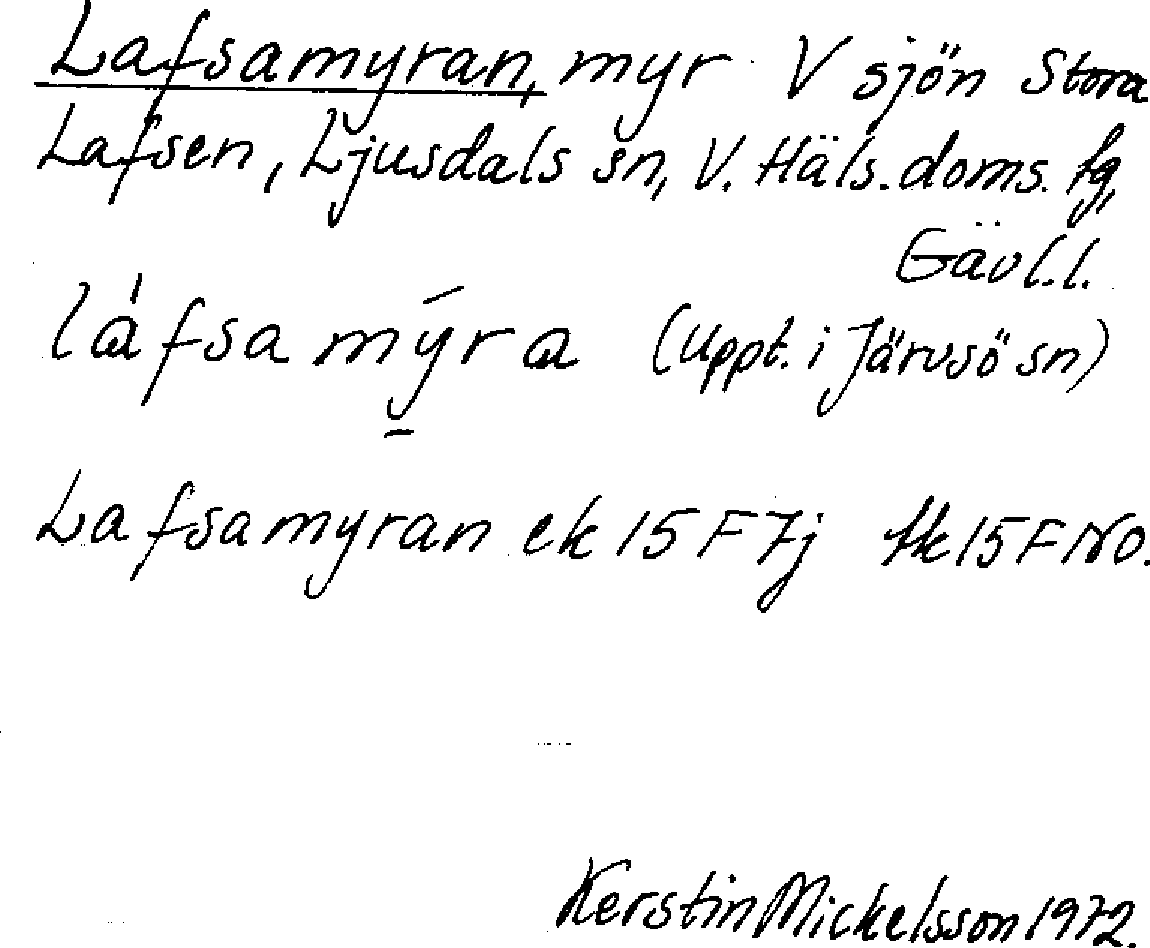 Lafsamyran, myr V sjön Stora
Lafsen, Ljusdals sn, V. Häls. doms. fg,
Gävl.l.
láfsa mýra (Uppt. i Järvsö sn)
Lafsamyran ek 15 F 7j tk 15 F NO.
Kerstin Mickelsson 1972.